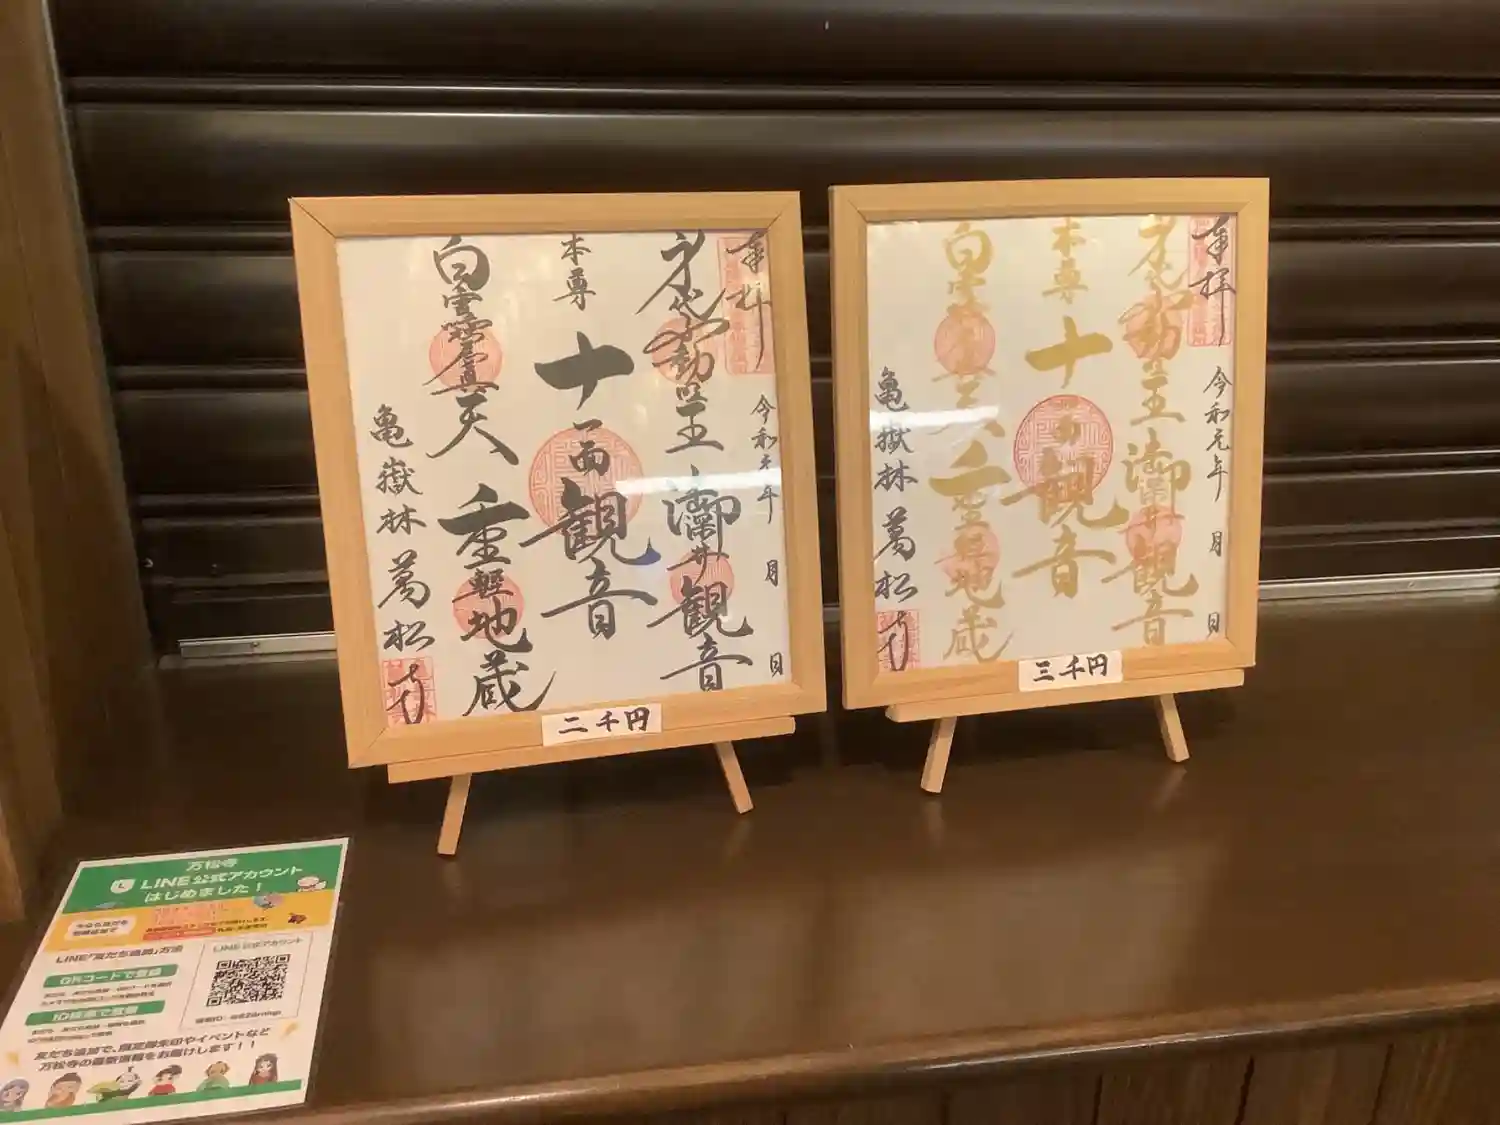 奉拝
令和元年 月 日
身代不動明王 瀧御井観音
本尊 十一面観音
白雪稲荷眞天 重軽地蔵
亀嶽林 萬松寺
二千円
奉拝
令和元年 月 日
身代不動明王
観音
本尊 十一面観音
重軽地蔵
亀嶽林 萬松寺
三千円
万松寺
LINE公式アカウント
はじめました！
LINE「友だち追加」方法
QRコードで登録
ID検索で登録
LINE公式アカウント
友だち追加で、限定御朱印やイベントなど
万松寺の最新情報をお届けします！！